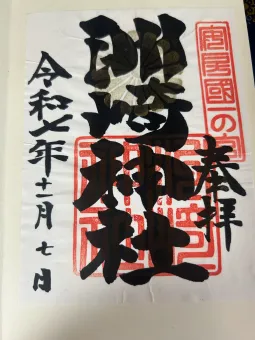 安房國一の宮
奉拝
洲崎神社
令和七年十一月七日